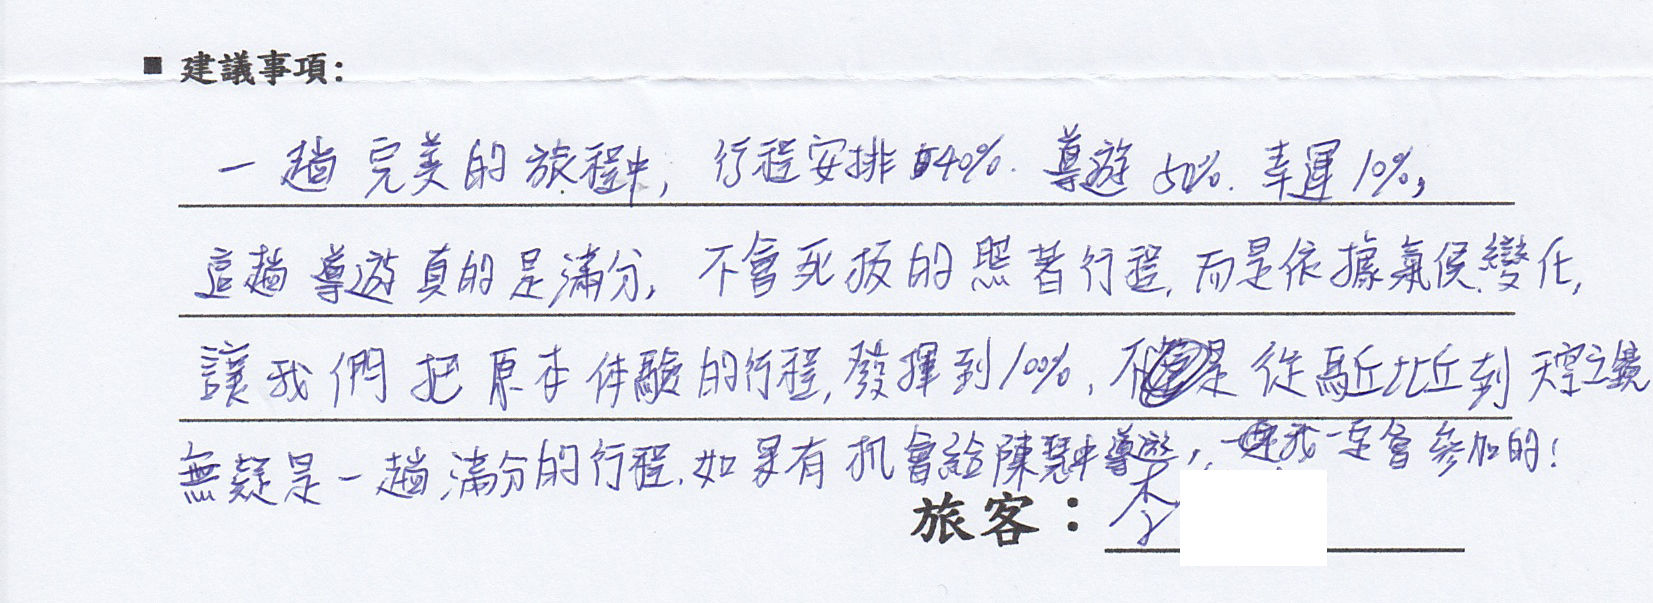 ■ 建議事項：
一趟完美的旅程中, 行程安排40%. 導遊50%. 幸運10%,
這趟導遊真的是滿分, 不會死板的照著行程, 而是依據氣侯變化,
讓我們把原本体驗的行程, 發揮到100%, 不是從馬丘比丘到天空之鏡
無疑是一趟滿分的行程, 如果有机會給陳慧中導遊, 我一定會參加的!
旅客：李